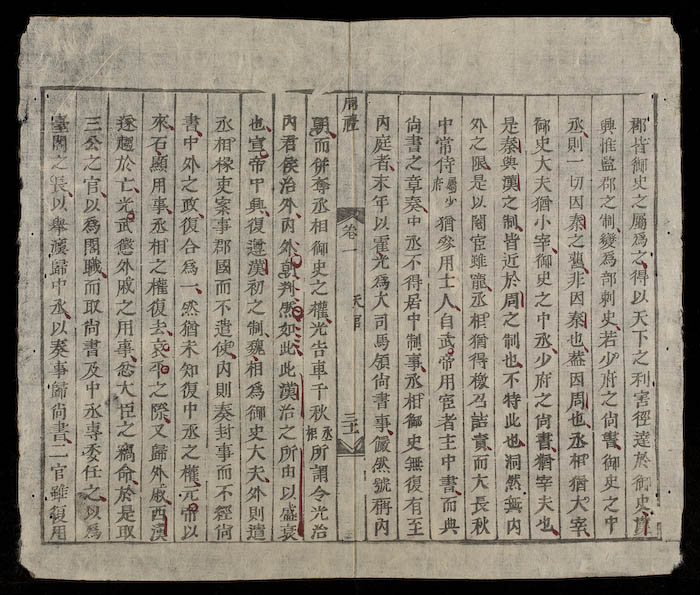 郡皆御史之屬爲之得以天下之利害徑達於御史漢
興惟監郡之制變爲部刺史若少府之尚書御史之中
丞則一切因秦之舊非因秦也蓋因周也丞相猶大宰
御史大夫猶小宰御史之中丞少府之尚書猶宰夫也
是秦與漢之制皆近於周之制也不特此也洞然無內
外之限是以閹宦雖寵丞相猶得檄召詰責而大長秋
中常侍屬少府猶參用士人自武帝用宦者主中書而典
尚書之章奏中丞不得居中制事丞相御史無復有至
內庭者末年以霍光爲大司馬領尚書事儼然號稱內
周禮 卷一 天官 三十
朝而併奪丞相御史之權光告車千秋丞相所謂令光治
內君侯治外內外朝判然如此此漢治之所由以盛衰
也宣帝中興復遵漢初之制魏相爲御史大夫外則遣
丞相椽吏案事郡國而不遣使內則奏封事而不經尚
書中外之政復合爲一然猶未知復中丞之權元帝以
來石顯用事丞相之權復去哀平之際又歸外戚西漢
遂趨於亡光武懲外戚之用事忿大臣之竊命於是取
三公之官以爲閣職而取尚書及中丞專委任之以爲
臺閣之長以舉壞歸中丞以奏事歸尚書二官雖復用